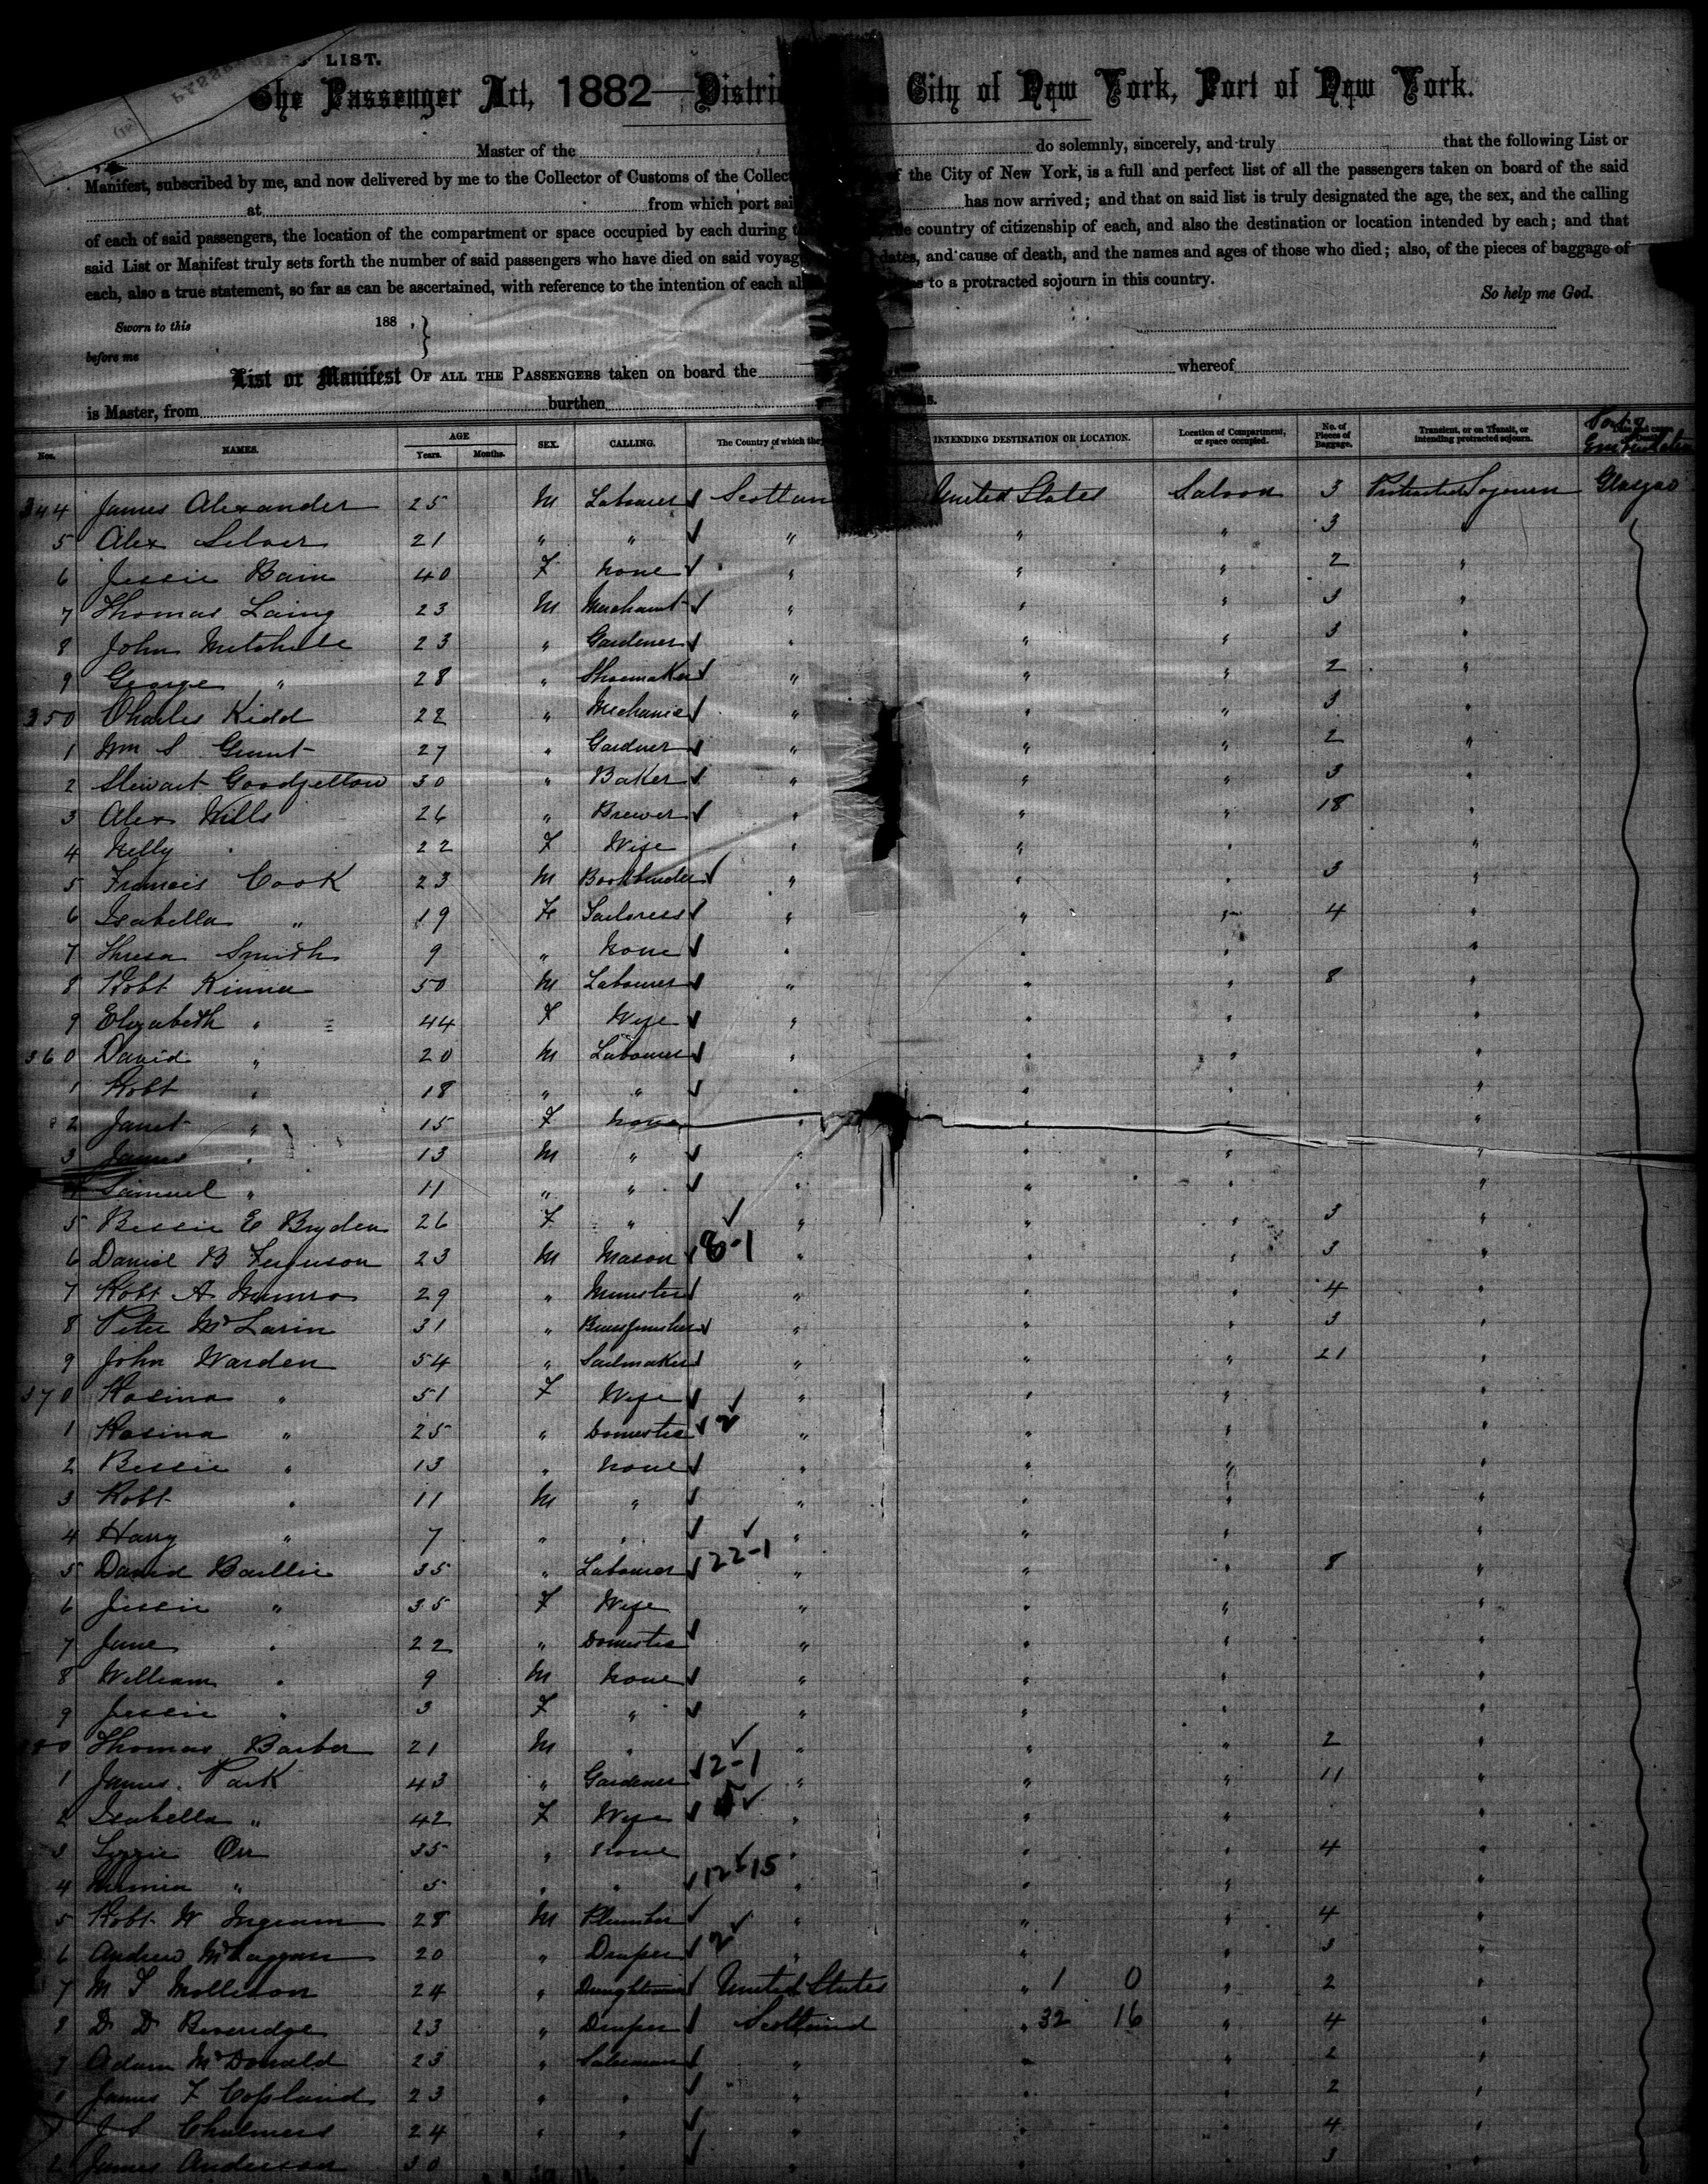 LIST.
The Passenger Act, 1882—Distri City of New York, Port of New York.
Master of the do solemnly, sincerely, and truly that the following List or
Manifest, subscribed by me, and now delivered by me to the Collector of Customs of the Collec of the City of New York, is a full and perfect list of all the passengers taken on board of the said
at from which port sai has now arrived; and that on said list is truly designated the age, the sex, and the calling
of each of said passengers, the location of the compartment or space occupied by each during the country of citizenship of each, and also the destination or location intended by each; and that
said List or Manifest truly sets forth the number of said passengers who have died on said voyag dates, and cause of death, and the names and ages of those who died; also, of the pieces of baggage of
each, also a true statement, so far as can be ascertained, with reference to the intention of each al to a protracted sojourn in this country.
So help me God.
Sworn to this 188 ,
before me
List or Manifest OF ALL THE PASSENGERS taken on board the whereof
is Master, from burthen
Nos. NAMES. AGE Years. Months. SEX. CALLING. The Country of which they INTENDING DESTINATION OR LOCATION. Location of Compartment, or space occupied. No. of Pieces of Baggage. Transient, or on Transit, or intending protracted sojourn.
344 James Alexander 25 M Labourer Scotlan United States Saloon 3 Protracted Sojourn Glasgow
5 Alex Silver 21 " " " " " 3 "
6 Jessie Bain 40 F None " " " 2 "
7 Thomas Laing 23 M Merchant " " " 3 "
8 John Mitchell 23 " Gardener " " " 3 "
9 George " 28 " Shoemaker " " " 2 "
350 Charles Kidd 22 " Mechanic " " " 3 "
1 Wm S Grant 27 " Gardner " " " 2 "
2 Stewart Goodfellow 30 " Baker " " " 3 "
3 Alex Wills 26 " Brewer " " " 18 "
4 Nelly " 22 F Wife " " " "
5 Francis Cook 23 M Bookbinder " " " 3 "
6 Isabella " 19 F Tailoress " " " 4 "
7 Thresa Smith 9 " None " " " "
8 Robt Kinnea 50 M Labourer " " " 8 "
9 Elizabeth " 44 F Wife " " " "
360 David " 20 M Labourer " " " "
1 Robt " 18 " " " " " "
2 Janet " 15 F None " " " "
3 James " 13 M " " " " "
4 Samuel " 11 " " " " " "
5 Bessie E Bryden 26 F " " " " 3 "
6 Daniel B Ferguson 23 M Mason 8-1 " " " 3 "
7 Robt A Munro 29 " Minister " " " 4 "
8 Peter McLarin 31 " Brassfinisher " " " 3 "
9 John Warden 54 " Sailmaker " " " 21 "
370 Rosina " 51 F Wife " " " "
1 Rosina " 25 " Domestic 2 " " " "
2 Bessie " 13 " None " " " "
3 Robt " 11 M " " " " "
4 Harry " 7 " " " " " "
5 David Baillie 35 " Labourer 22-1 " " " 8 "
6 Jessie " 35 F Wife " " " "
7 Jane " 22 " Domestic " " " "
8 William " 9 M None " " " "
9 Jessie " 3 F " " " " "
380 Thomas Barber 21 M " " " " 2 "
1 James Park 43 " Gardener 12-1 " " " 11 "
2 Isabella " 42 F Wife " " " "
3 Lizzie Orr 35 " None " " " 4 "
4 " 5 " " 12 15 " " " "
5 Robt W Ingram 28 M Plumber " " " 4 "
6 Andrew McLaggan 20 " Draper 2 " " " 3 "
7 M S Mollison 24 " Draughtsman United States " 1 0 " 2 "
8 D D Beveridge 23 " Draper Scotland " 32 16 " 4 "
9 Adam McDonald 23 " Salesman " " " 2 "
0 James F Copland 23 " " " " " 2 "
1 J S Chalmers 24 " " " " " 4 "
2 James Anderson 30 " " " " 3 "